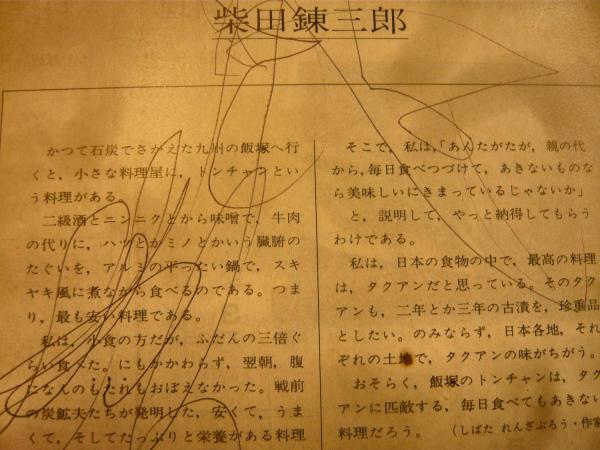 柴田錬三郎
かつて石炭でさかえた九州の飯塚へ行
くと，小さな料理屋に，トンチャンとい
う料理がある。
二級酒とニンニクとから味噌で，牛肉
の代りに，ハツとかミノとかいう臓腑の
たぐいを，アルミの平ったい鍋で，スキ
ヤキ風に煮ながら食べるのである。つま
り，最も安い料理である。
私は，小食の方だが，ふだんの三倍ぐ
らい食べた。にもかかわらず，翌朝，腹
になんのもたれもおぼえなかった。戦前
の炭鉱夫たちが発明した，安くて，うま
くて，そしてたっぷりと栄養がある料理
そこで，私は，「あんたがたが，親の代
から，毎日食べつづけて，あきないものな
ら美味しいにきまっているじゃないか」
と，説明して，やっと納得してもらう
わけである。
私は，日本の食物の中で，最高の料理
は，タクアンだと思っている。そのタク
アンも，二年とか三年の古漬を，珍重品
としたい。のみならず，日本各地，それ
ぞれの土地で，タクアンの味がちがう。
おそらく，飯塚のトンチャンは，タク
アンに匹敵する，毎日食べてもあきない
料理だろう。（しばた れんざぶろう・作家